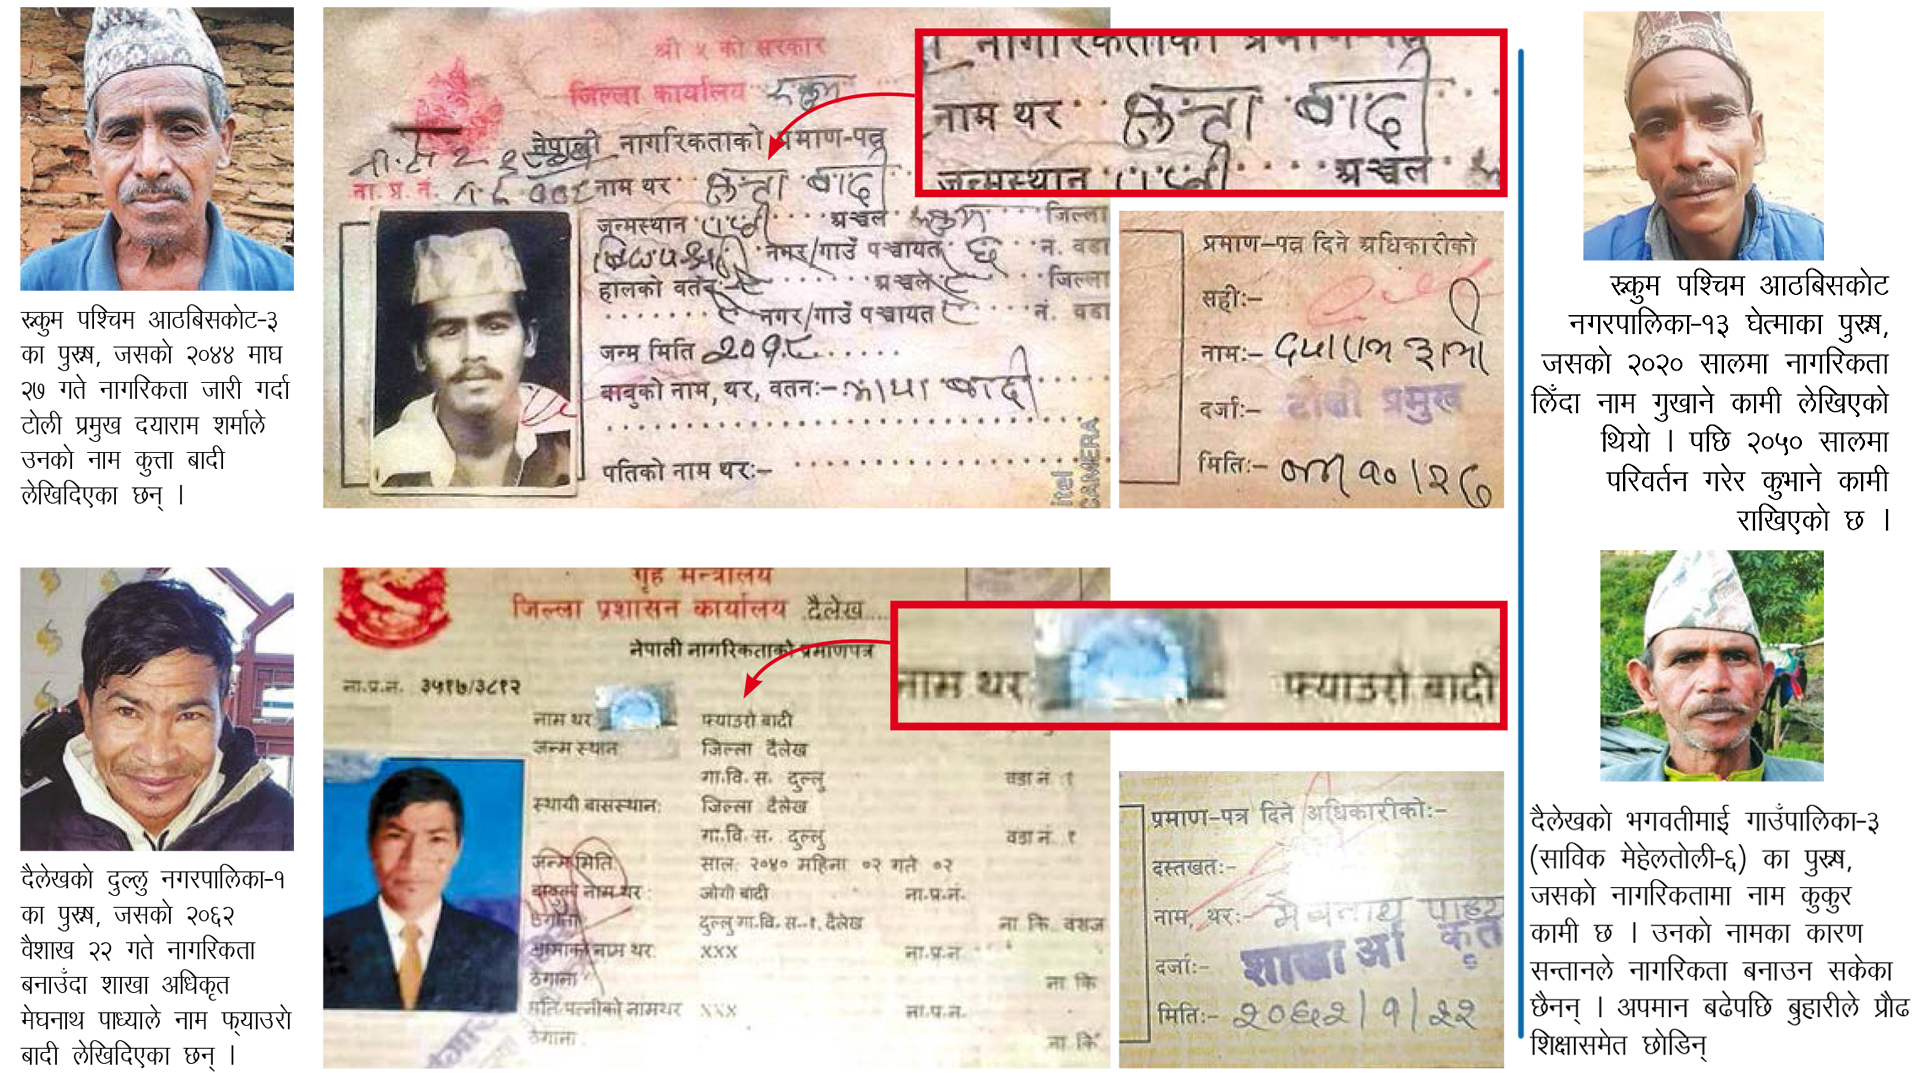 रुकुम पश्चिम आठबिसकोट-३
का पुरुष, जसको २०४४ माघ
२७ गते नागरिकता जारी गर्दा
टोली प्रमुख दयाराम शर्माले
उनको नाम कुत्ता बादी
लेखिदिएका छन् ।
श्री ५ को सरकार
जिल्ला कार्यालय रुकुम
नेपाली नागरिकताको प्रमाण-पत्र
ना. प्र. नं.
नाम थर कुत्ता बादी
जन्मस्थान राप्ती अञ्चल रुकुम जिल्ला
नगर/गाउँ पञ्चायत ६ नं. वडा
हालको वतन ऐ अञ्चल ऐ जिल्ला
ऐ नगर/गाउँ पञ्चायत ऐ नं. वडा
जन्म मिति २०१८
बाबुको नाम, थर, वतनः- माया बादी
पतिको नाम थरः-
itel
CAMERA
नागरिकताको प्रमाण-पत्र
नाम थर कुत्ता बादी
जन्मस्थान राप्ती अञ्चल
प्रमाण-पत्र दिने अधिकारीको
सहीः-
नामः- दयाराम शर्मा
दर्जाः- टोली प्रमुख
मितिः- ०४४।१०।२७
रुकुम पश्चिम आठबिसकोट
नगरपालिका-१३ घेत्माका पुरुष,
जसको २०२० सालमा नागरिकता
लिँदा नाम गुखाने कामी लेखिएको
थियो । पछि २०५० सालमा
परिवर्तन गरेर कुभाने कामी
राखिएको छ ।
दैलेखको दुल्लु नगरपालिका-१
का पुरुष, जसको २०६२
वैशाख २२ गते नागरिकता
बनाउँदा शाखा अधिकृत
मेघनाथ पाध्याले नाम फ्याउरो
बादी लेखिदिएका छन् ।
गृह मन्त्रालय
जिल्ला प्रशासन कार्यालय दैलेख
नेपाली नागरिकताको प्रमाणपत्र
ना.प्र.नं. ३५१७/३८१२
नाम थर फ्याउरो बादी
जन्म स्थान जिल्ला दैलेख
गा.वि. स. दुल्लु वडा नं. १
स्थायी बासस्थान: जिल्ला दैलेख
गा.वि. स. दुल्लु वडा नं. १
जन्म मिति साल: २०४० महिना ०२ गते ०२
बाबुको नाम थर : जोगी बादी ना.प्र.नं.
ठेगाना दुल्लु गा.वि. स.-१, दैलेख ना कि वंशज
आमाको नाम थर: xxx ना.प्र.न
ठेगाना ना कि
पति/पत्नीको नामथर xxx ना.प्र.न.
ठेगाना ना कि
नाम थर फ्याउरो बादी
प्रमाण-पत्र दिने अधिकारीकोः-
दस्तखतः-
नाम, थरः- मेघनाथ पाध्या
दर्जाः- शाखा अधिकृत
मितिः- २०६२/१/२२
दैलेखको भगवतीमाई गाउँपालिका-३
(साविक मेहेलतोली-६) का पुरुष,
जसको नागरिकतामा नाम कुकुर
कामी छ । उनको नामका कारण
सन्तानले नागरिकता बनाउन सकेका
छैनन् । अपमान बढेपछि बुहारीले प्रौढ
शिक्षासमेत छोडिन्